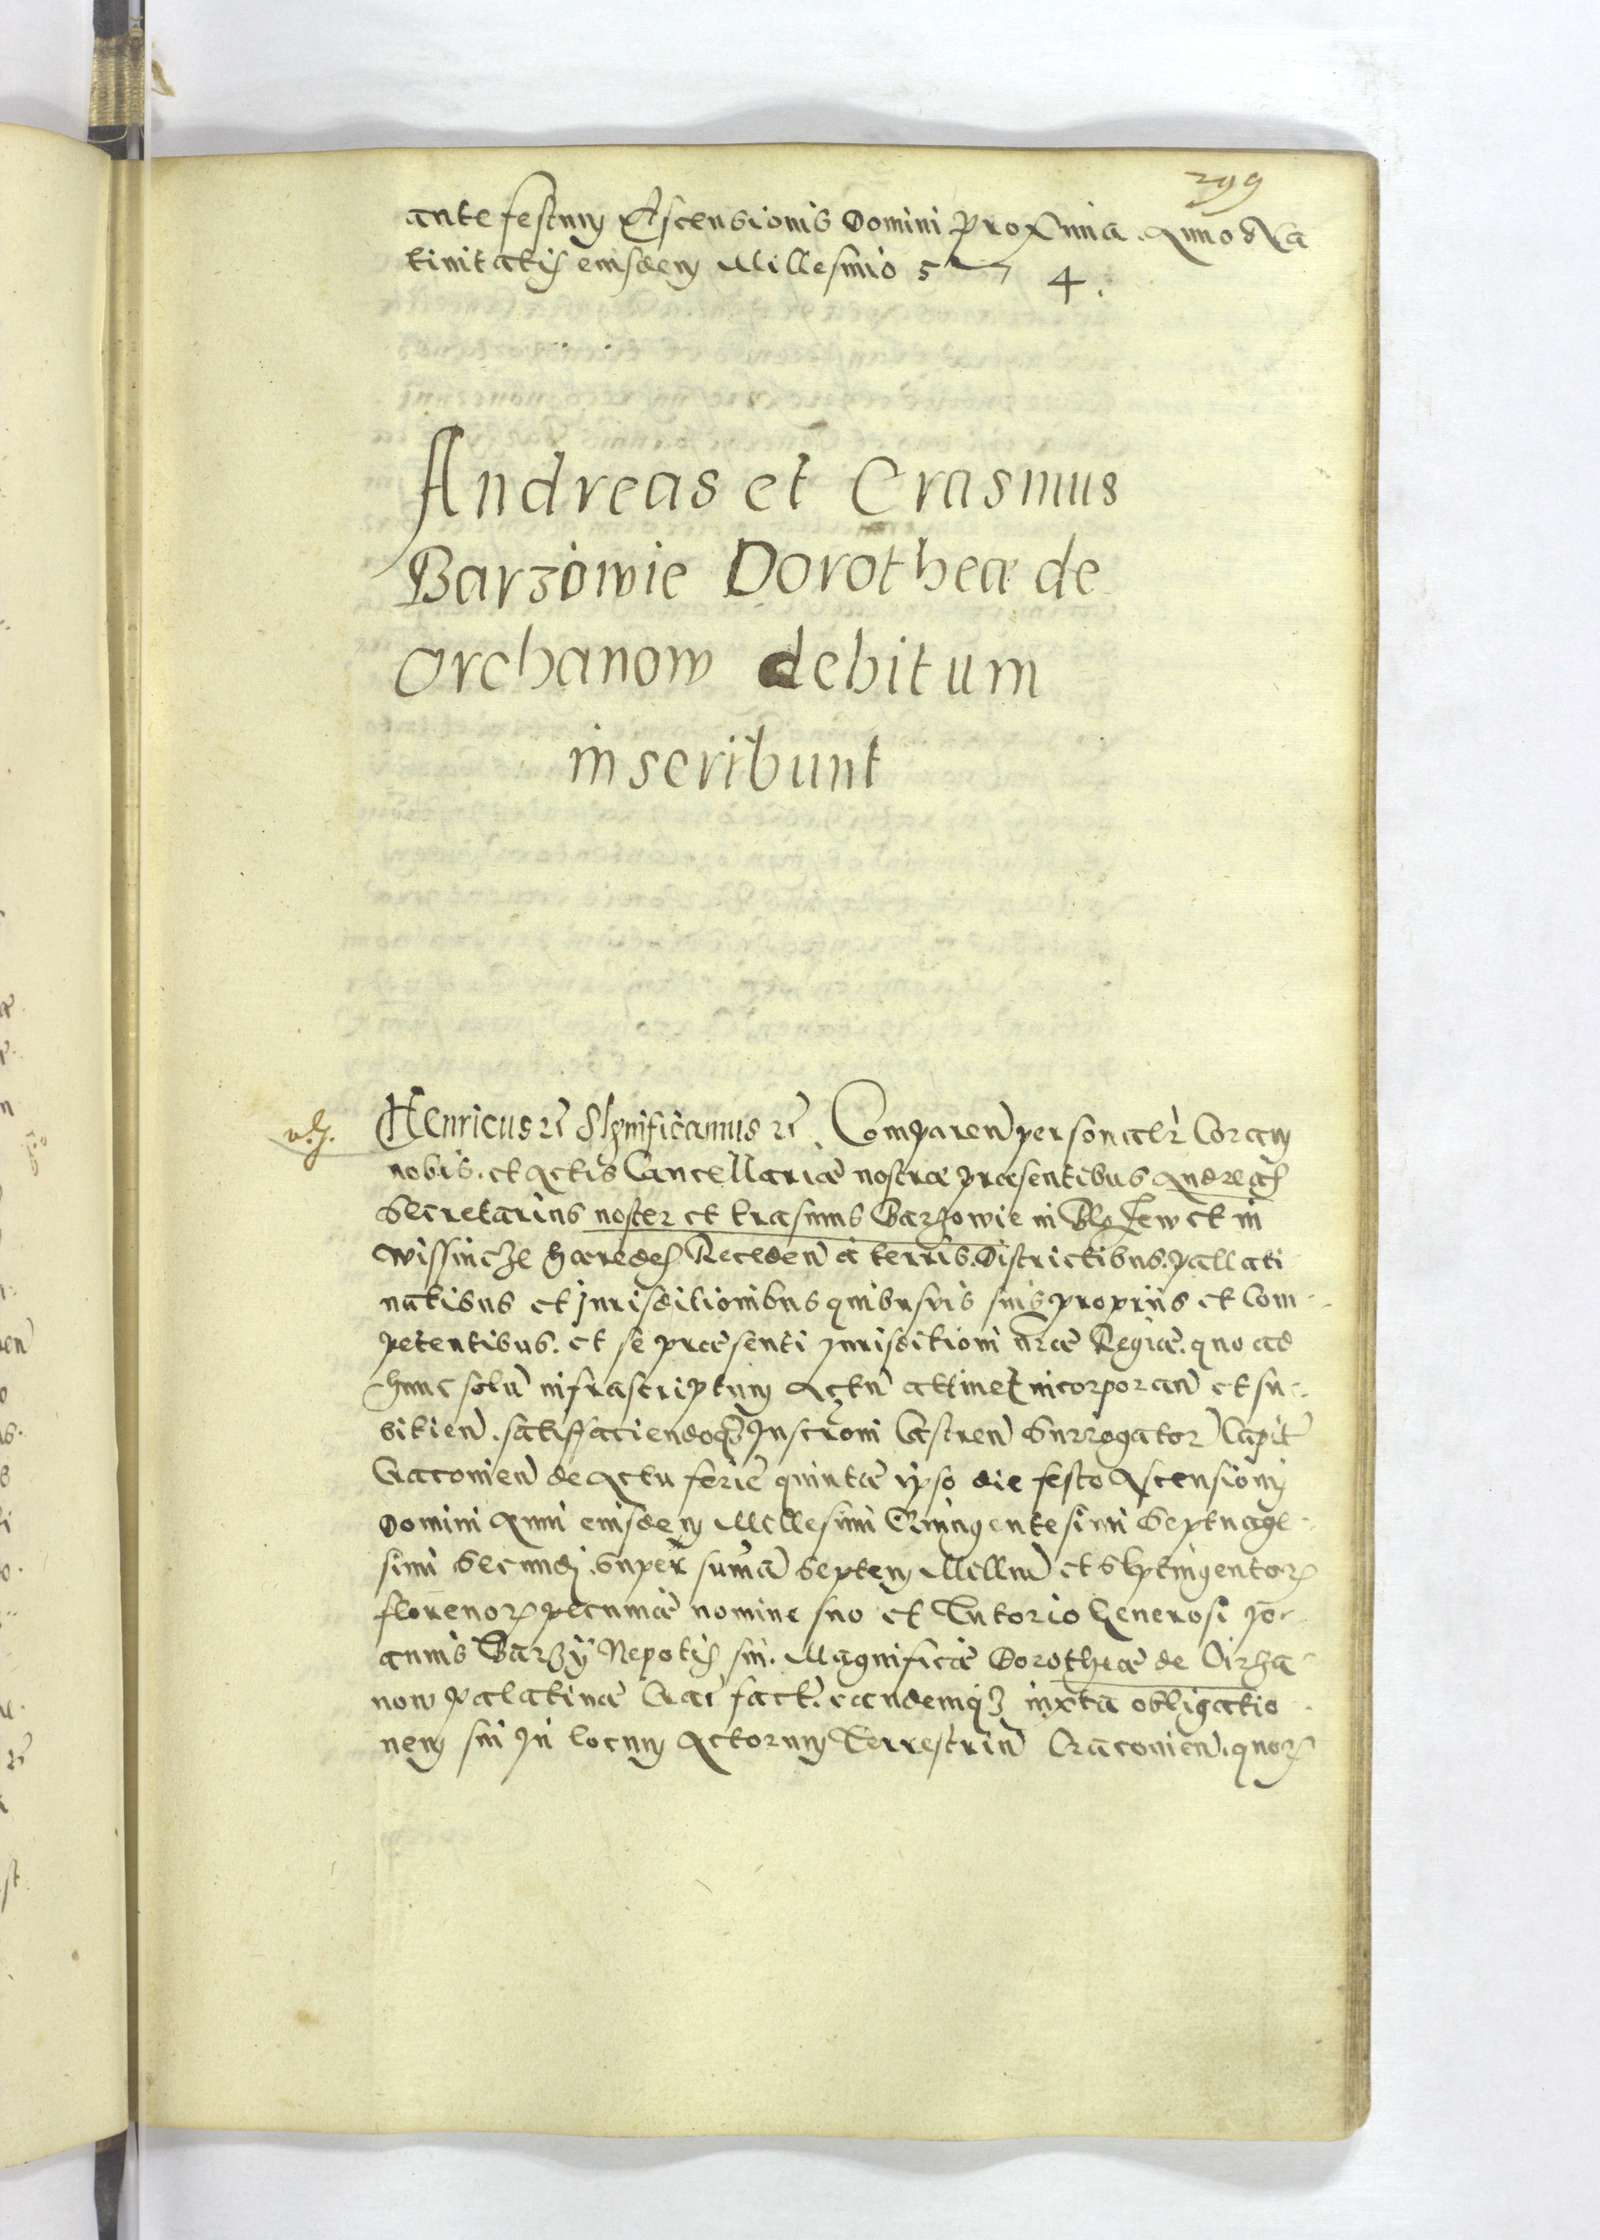 299
ante festum Ascensionis Domini proxima. Anno Na
tivitatis eiusdem Millesimo 5 7 4.
Andreas et Erasmus
Barzowie Dorotheæ de
orchanow debitum
inscribunt
Henricus rc̃ Significamus rc̃. Comparen̄ personalr̃ Coram
nobis. et Actis Cancellariæ nostræ præsentibus Andreas
Secretarius noster et Erasmus Barzowie in Blożew et in
Wissnicze hæredes Receden̄ a terris. Districtibus. pallati
natibus et Jurisditionibus quibusvis suis propriis et Com
petentibus. et se præsenti Jurisditioni nr̃æ Regiæ. quo ad
hunc solū infrascriptum Actū attinet incorporan̄ et su
bitien̄. satisfaciendoq̃ Inscr̄oni Castren̄ Surrogator̃ Capit̃
Cracovien̄ de Actu feriæ quintæ ipso die festo Ascensionis
Domini Anni eiusdem Millesimi Quingentesimi Septuage
simi Secundi. Super sum̄ā Septem Milliū et Septingentor̃
florenor̃ pecuniæ nomine suo et Tutorio Generosi Jo
annis Barzÿ Nepotis sui. Magnificæ Dorotheæ de Oirzha
now palatinæ Crac̃ fact̃. eandemq3 iuxta obligatio
nem sui in locum Actorum Terrestriū Cracovien̄. quor̃